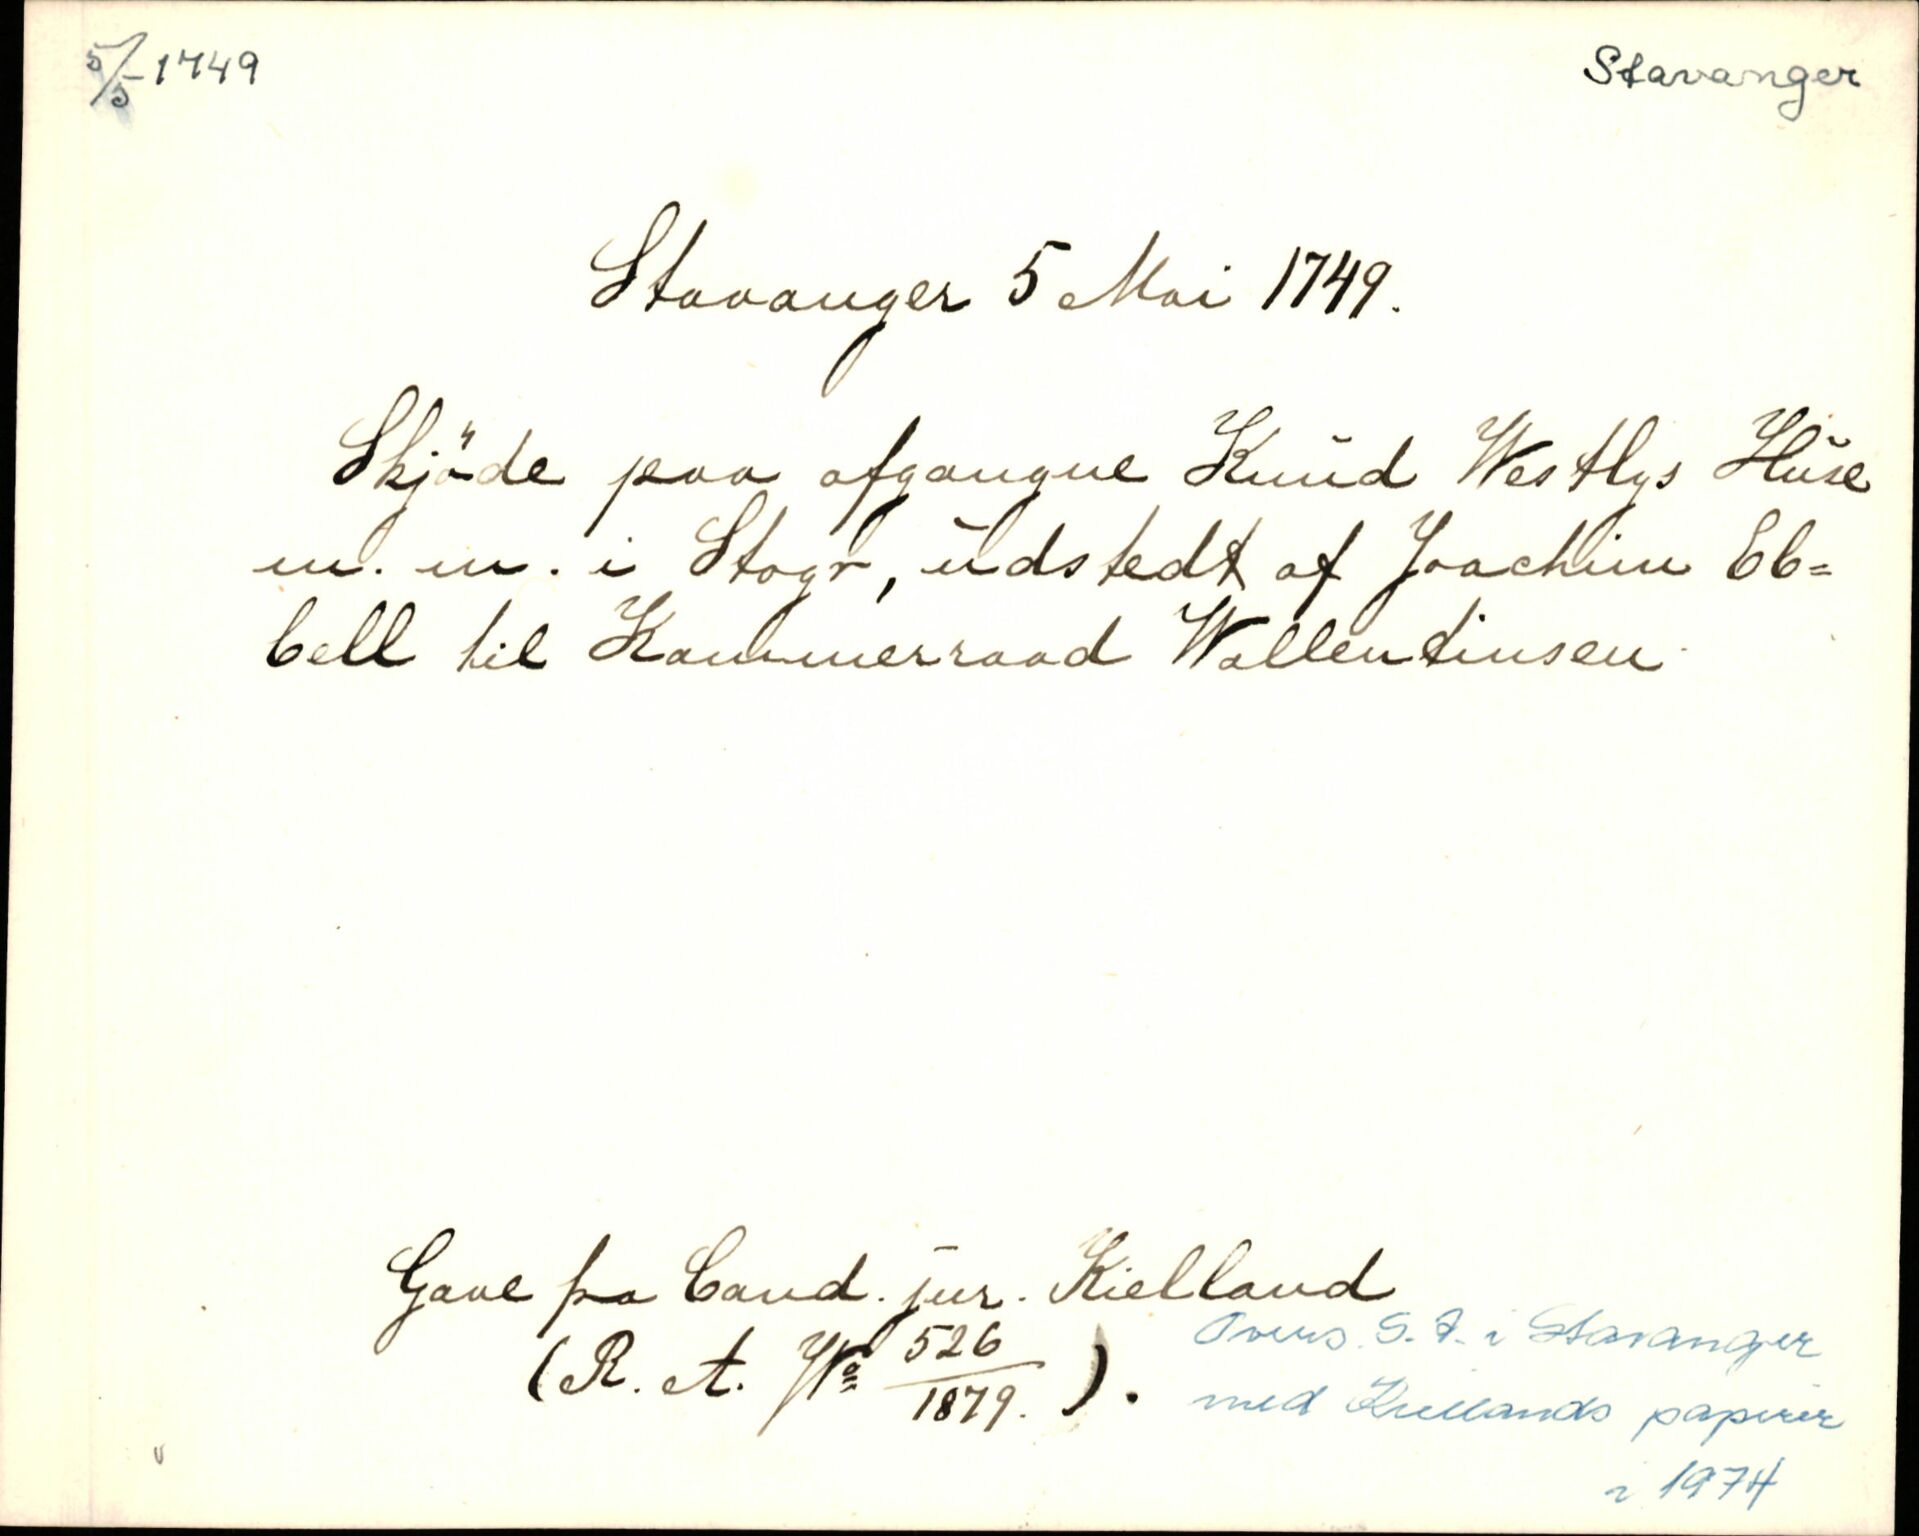 5/5-1749
Stavanger
Stavanger 5 Mai 1749.
Skjöde paa afgangne Knud Westlys Huse
m. m. i Stagr, udstedt af Joachim Eb=
bell til Kammerraad Wallentinsen.
Gave fra Cand. jur. Kielland
(R. A. No 526/1879.).
Overs. S. A. i Stavanger
med Kiellands papirer
i 1974